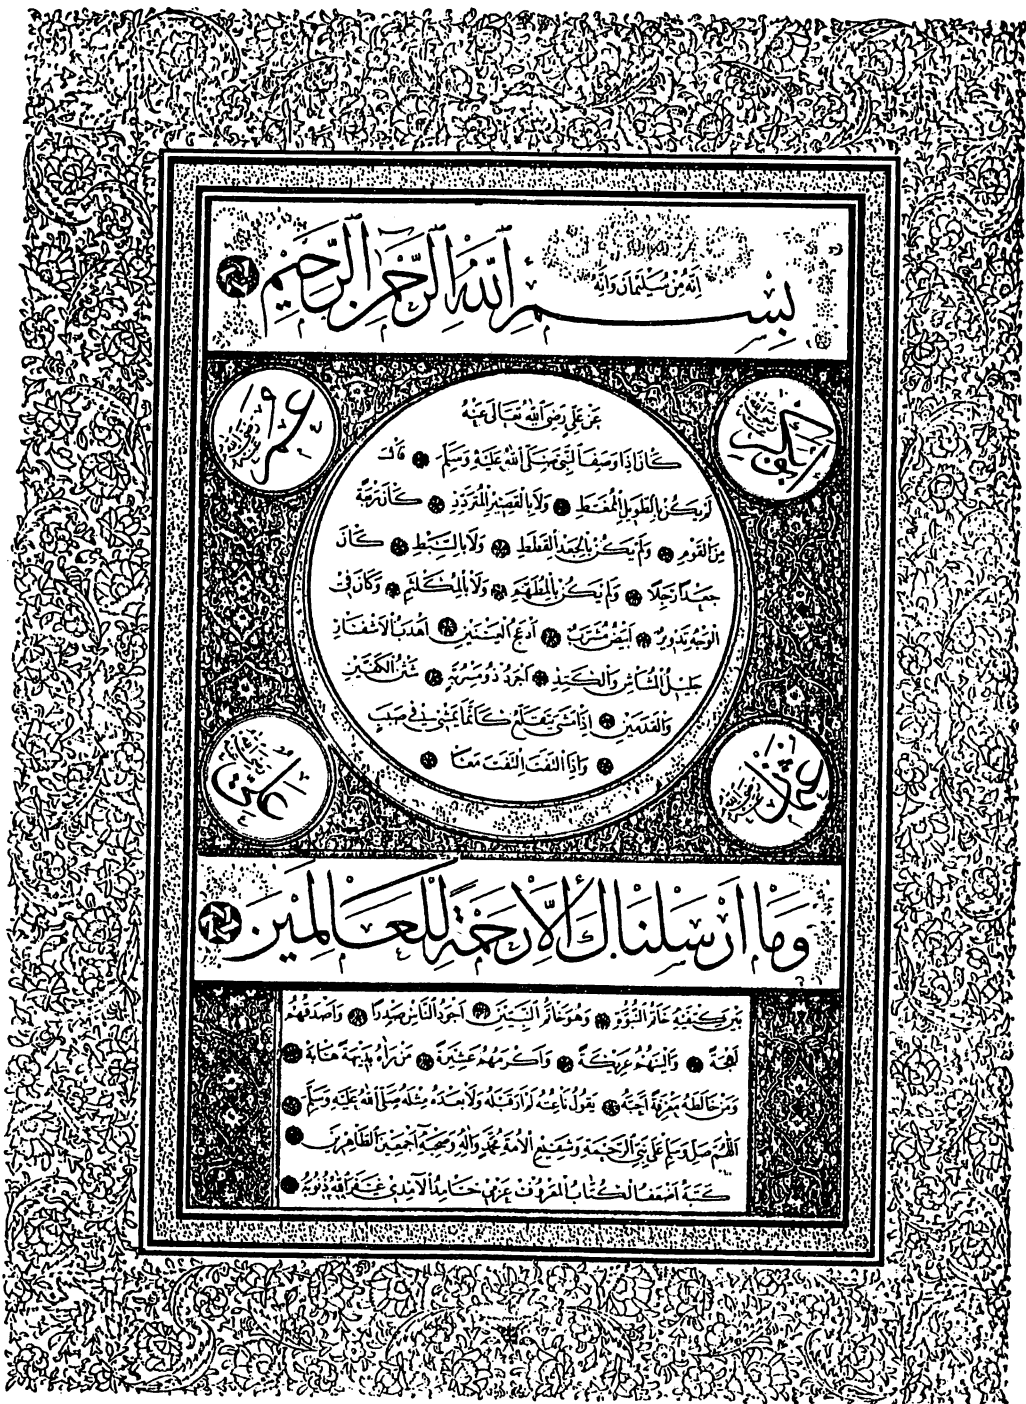 إنه من سليمان وإنه
بسم الله الرحمن الرحيم
أبو بكر
عمر
عن علي رضي الله تعالى عنه
كان إذا وصف النبي صلى الله عليه وسلم قال
لم يكن بالطويل الممغط ولا بالقصير المتردد كان ربعة
من القوم ولم يكن بالجعد القطط ولا بالسبط كان
جعدا رجلا ولم يكن بالمطهم ولا بالمكلثم وكان في
الوجه تدوير أبيض مشرب أدعج العينين أهدب الأشفار
جليل المشاش والكتد أجرد ذو مسربة شثن الكفين
والقدمين إذا مشى تقلع كأنما يمشي في صبب
وإذا التفت التفت معا
عثمان
علي
وما أرسلناك إلا رحمة للعالمين
بين كتفيه خاتم النبوة وهو خاتم النبيين أجود الناس صدرا وأصدقهم
لهجة وألينهم عريكة وأكرمهم عشيرة من رآه بديهة هابه
ومن خالطه معرفة أحبه يقول ناعته لم أر قبله ولا بعده مثله صلى الله عليه وسلم
اللهم صل وسلم على نبي الرحمة وشفيع الأمة محمد وآله وصحبه أجمعين الطاهرين
كتبه أضعف الكتاب المعروف حامد الآمدي غفر الله ذنوبه